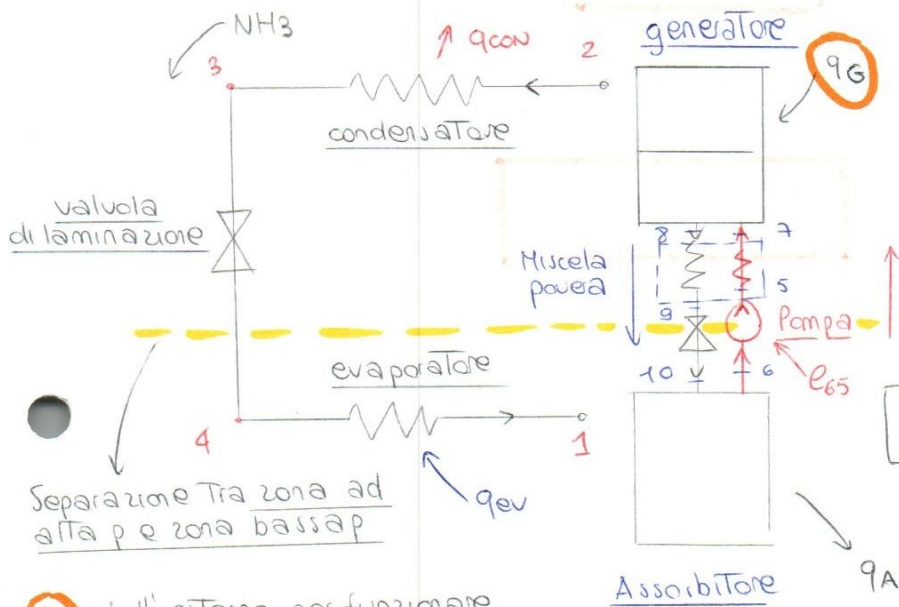 NH3
3
qcon
2
generatore
qG
condensatore
valvola
di laminazione
8
7
Miscela
povera
5
9
Pompa
evaporatore
10
6
e65
4
1
Separazione Tra zona ad
alta p e zona bassa p
qev
Assorbitore
qA